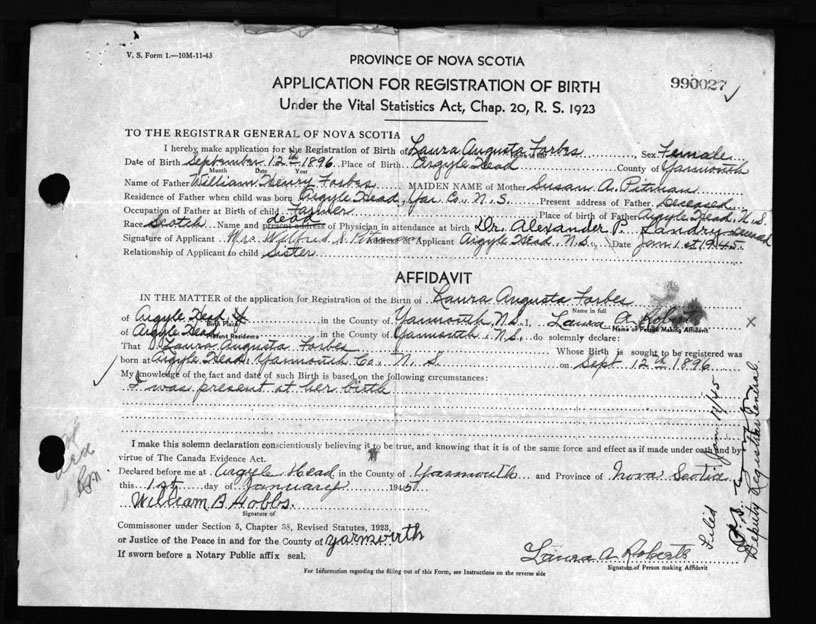 V. S. Form 1.—10M-11-43
PROVINCE OF NOVA SCOTIA
990027
APPLICATION FOR REGISTRATION OF BIRTH
Under the Vital Statistics Act, Chap. 20, R. S. 1923
TO THE REGISTRAR GENERAL OF NOVA SCOTIA
I hereby make application for the Registration of Birth of Laura Augusta Forbes, Sex Female
Date of Birth September 12th 1896 Place of Birth Argyle Head County of Yarmouth
Month Date Year
Name of Father William Henry Forbes MAIDEN NAME of Mother Susan A. Pitman
Residence of Father when child was born Argyle Head, Yar. Co., N. S. Present address of Father, deceased
Occupation of Father at Birth of child Farmer Place of birth of Father Argyle Head, N. S.
Race Scotch Name and present address of Physician in attendance at birth dead Dr. Alexander P. Landry deceased
Signature of Applicant Mrs Wilfred S. Address of Applicant Argyle Head, N. S., Date Jan 1st 1945.
Relationship of Applicant to child Sister
AFFIDAVIT
IN THE MATTER of the application for Registration of the Birth of Laura Augusta Forbes
Name in full
of Argyle Head in the County of Yarmouth N. S. I, Laura A Roberts
Birth Place Name of Person Making Affidavit
of Argyle Head in the County of Yarmouth, N. S. do solemnly declare:
Present Residence
That Laura Augusta Forbes Whose Birth is sought to be registered was
born at Argyle Head, Yarmouth Co., N. S. on Sept 12th 1896
My knowledge of the fact and date of such Birth is based on the following circumstances:
I was present at her birth
I make this solemn declaration conscientiously believing it to be true, and knowing that it is of the same force and effect as if made under oath and by
virtue of The Canada Evidence Act.
Declared before me at Argyle Head in the County of Yarmouth and Province of Nova Scotia
this 1st day of January 1945
William B Hobbs
Signature of
Commissioner under Section 5, Chapter 38, Revised Statutes, 1923,
or Justice of the Peace in and for the County of Yarmouth
If sworn before a Notary Public affix seal.
Laura A Roberts
Signature of Person making Affidavit
For Information regarding the filling out of this Form, see Instructions on the reverse side
Filed Jan
Deputy Registrar General